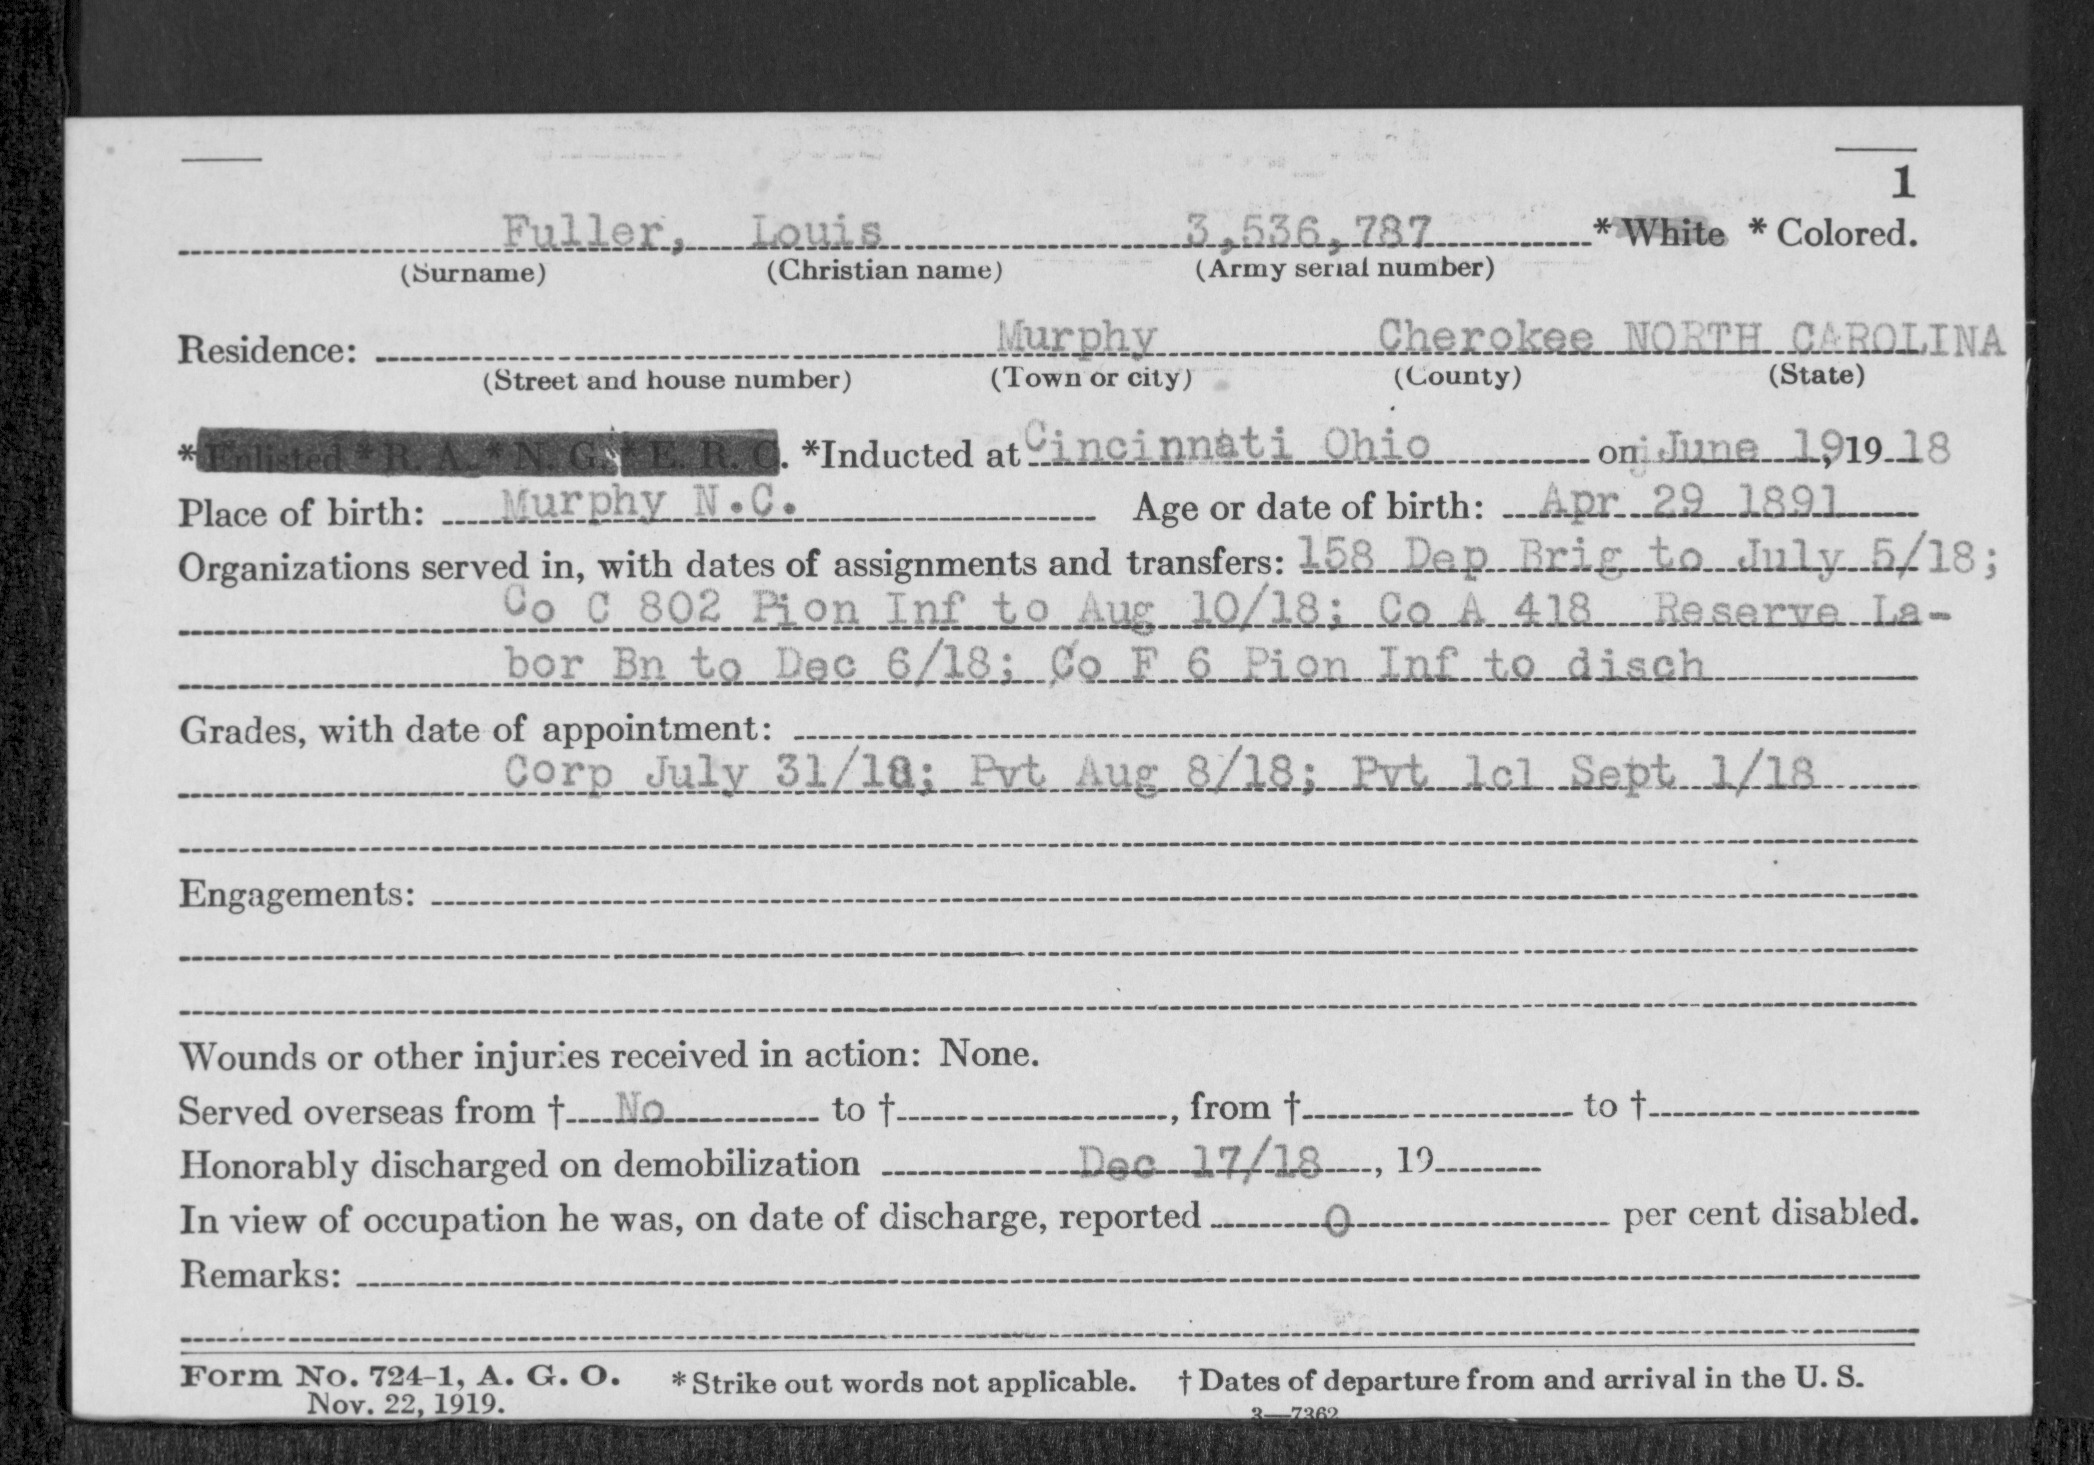 1
Fuller, Louis 3,536,787 * White * Colored.
(Surname) (Christian name) (Army serial number)
Residence: Murphy Cherokee NORTH CAROLINA
(Street and house number) (Town or city) (County) (State)
* Enlisted * R. A. * N. G. * E. R. C. *Inducted at Cincinnati Ohio on June 19, 1918
Place of birth: Murphy N.C. Age or date of birth: Apr 29 1891
Organizations served in, with dates of assignments and transfers: 158 Dep Brig to July 5/18;
Co C 802 Pion Inf to Aug 10/18; Co A 418 Reserve La-
bor Bn to Dec 6/18; Co F 6 Pion Inf to disch
Grades, with date of appointment:
Corp July 31/18; Pvt Aug 8/18; Pvt 1cl Sept 1/18
Engagements:
Wounds or other injuries received in action: None.
Served overseas from † No to †, from † to †
Honorably discharged on demobilization Dec 17/18, 19
In view of occupation he was, on date of discharge, reported 0 per cent disabled.
Remarks:
Form No. 724-1, A. G. O. * Strike out words not applicable. † Dates of departure from and arrival in the U. S.
Nov. 22, 1919. 3—7362